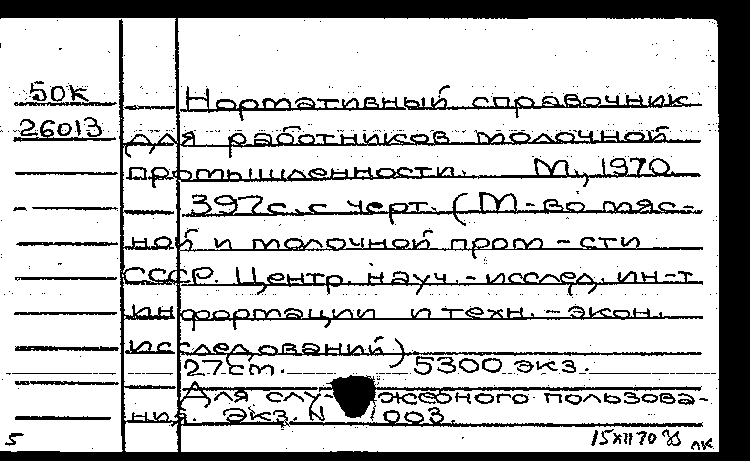 50К
26013
Нормативный справочник
для работников молочной
промышленности. М., 1970
397с. с черт. (М-во мяс-
ной и молочной пром-сти
СССР. Центр. науч.-исслед. ин-т
информации и техн.-экон.
исследований)
27см. 5300 экз.
Для слу- жебного пользова-
ния. Экз. N 003.
5 15 XII 70 лк